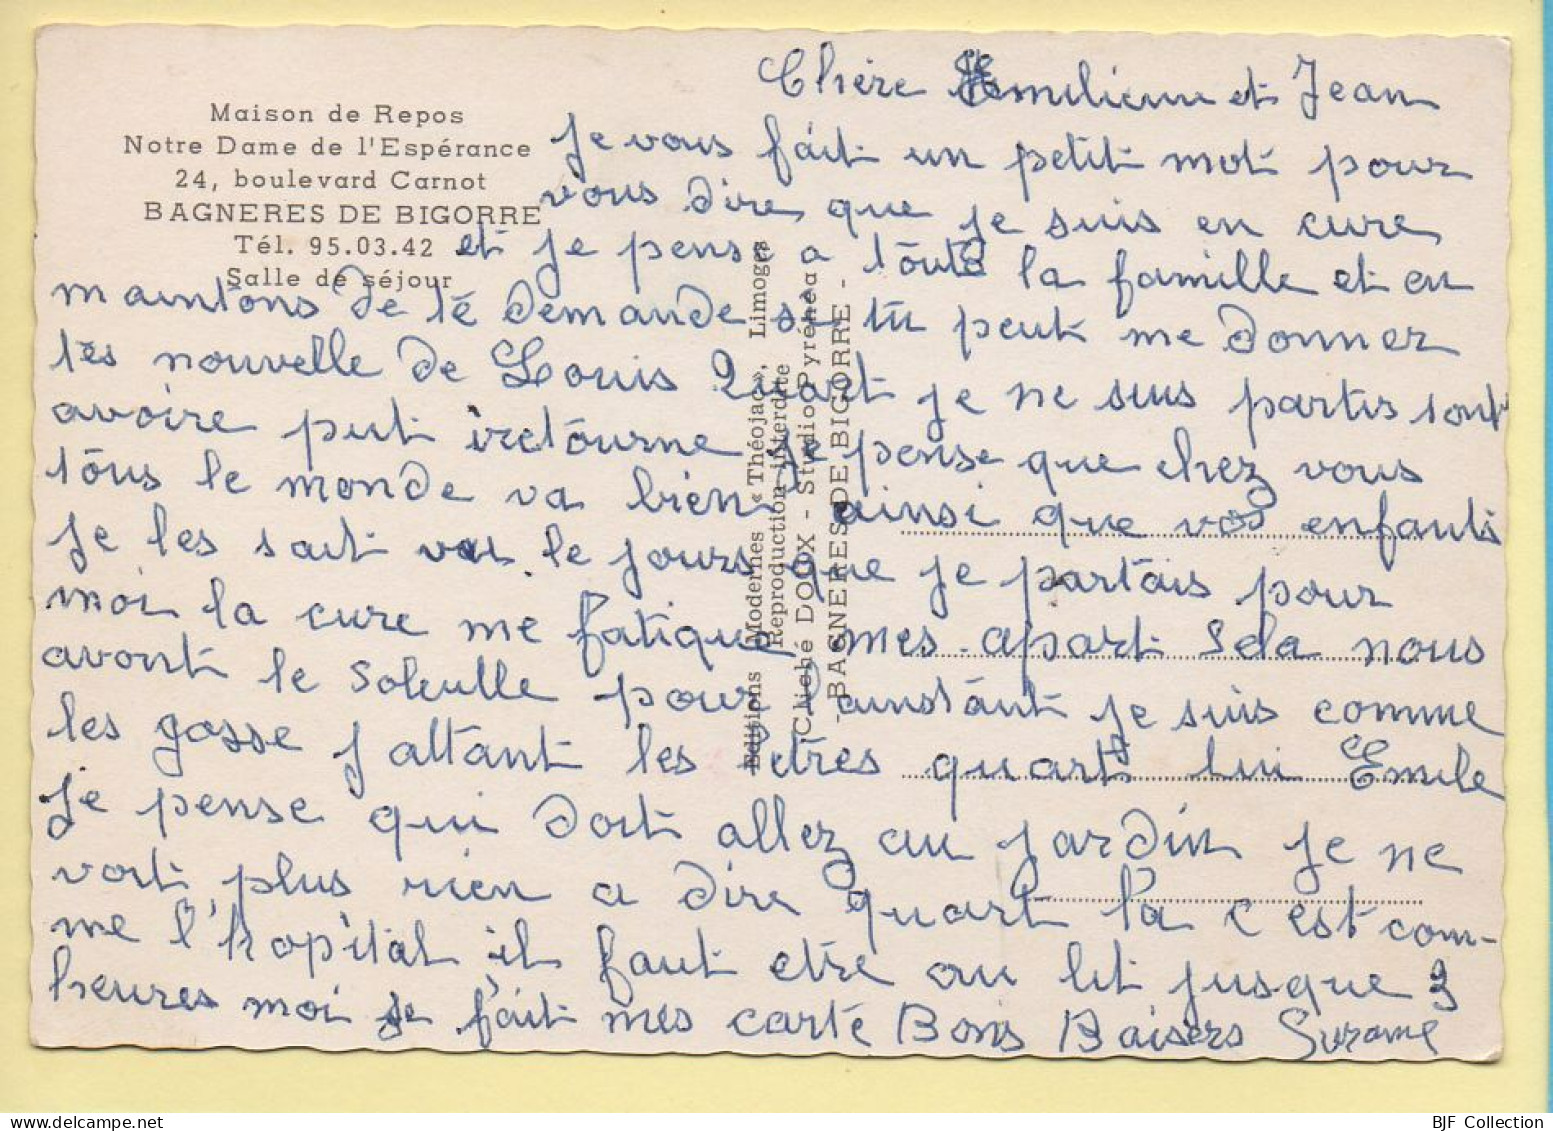 Maison de Repos
Notre Dame de l'Espérance
24, boulevard Carnot
BAGNERES DE BIGORRE
Tél. 95.03.42
Salle de séjour
Editions Modernes « Théojac », Limoges
Reproduction interdite
Cliché DOUX - Studio Pyrénéa
- BAGNERES DE BIGORRE -
Chère Emilienne et Jean
Je vous fait un petit mot pour
vous dire que je suis en cure
et je pense a toute la famille et en
maintons de te demande si tu peut me donner
tes nouvelle de Louis Quart je ne suis partis tout
avoire put retourne je pense que chez vous
tous le monde va bien ainsi que vos enfants
je les sait vu le jours que je partais pour
moi la cure me fatigue mes apart sela nous
avont le soleille pour l'instant je suis comme
les gosse j attant les lettres quart lui Emile
je pense qui doit allez au jardin je ne
voit plus rien a dire quart la c est com-
me l'hopital il faut etre au lit jusque 3
heures moi je fait mes carte Bons Baisers Suzanne
BJF Collection